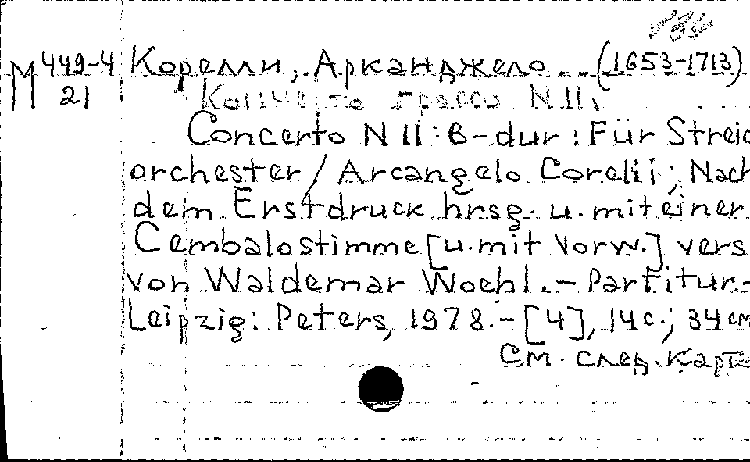 М 449-4
21
Корелли, Арканджело (1653-1713)
Кончерто гроссо N 11.
Concerto N 11: B-dur: Für Streich
orchester / Arcangelo Corelli; Nach
dem Erstdruck hrsg. u. mit einer
Cembalostimme [u. mit Vorw.] vers.
von Waldemar Woehl. - Partitur. -
Leipzig: Peters, 1978. - [4], 14 с.; 34 см
См. след. карт